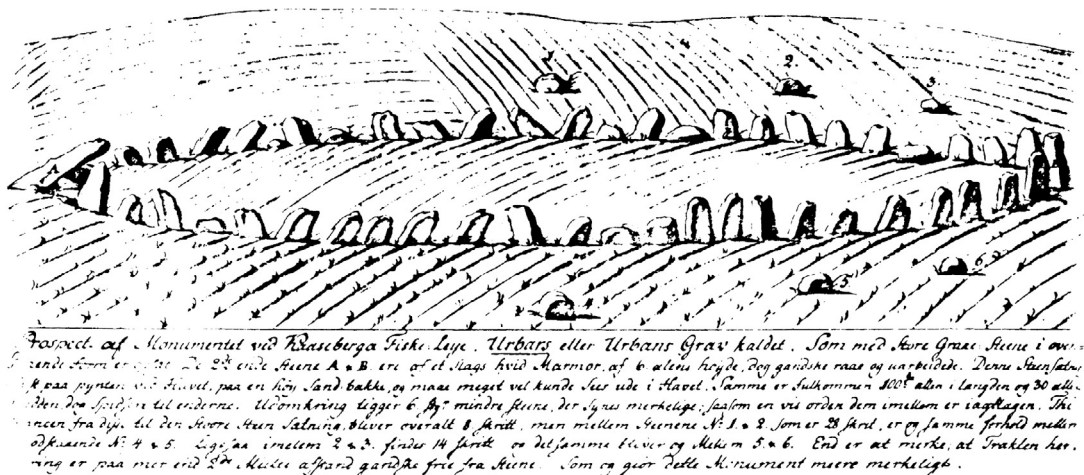 1 2 3
A
6
5
4
Prospect. af Monumentet ved Kaaseberga Fiske-Leye, Urbars eller Urbans Grav kaldet. Som med Store Graae Steene i oven=
ende Steene A & B. ere af et Slags hvid Marmor, af 6 alens høyde, dog gandske raae og uarbeidede. Denne Steensætn
paa pynten ved Havet, paa en høy Sand-bakke, og maae meget vel kunde sees ude i Havet. Samme er fulkommen 100de allen i længden og 30 alle
dog Spidsen til enderne. Udomkring ligger 6 mindre steene, der synes merkelige; saasom en vis orden dem imellem er iagttagen. Thi
til den Større Steen Sætning, bliver overalt 8 skrit, men mellem Steenene No. 1. & 2. som er 28 skrit, er og samme forhold mellem
No. 4 & 5. Ligesaa imelem 2 & 3. findes 14 skritt og det samme bliver og Melem 5 & 6. End er at merke, at Trakten her
er paa mer end afstand gandske frie fra Steene. Som og giør dette Monument meere merkeligt